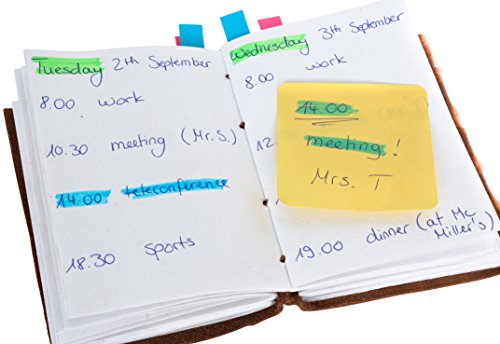 Tuesday 2th September
8.00 work
10.30 meeting (Mr.S.)
14.00 teleconference
18.30 sports
Wednesday 3th September
8.00 work
14.00
meeting!
Mrs. T
12.
19.00 dinner (at Mc
Miller's)